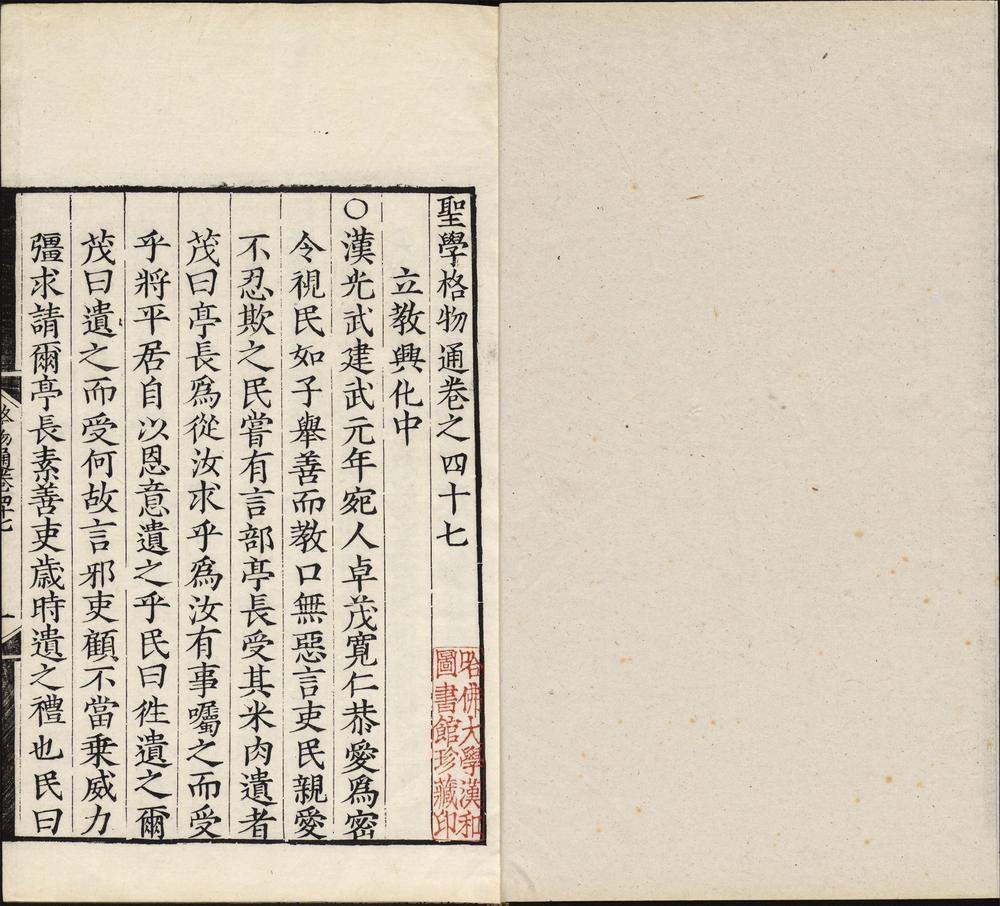 聖學格物通卷之四十七
立教興化中
○漢光武建武元年宛人卓茂寬仁恭愛爲密
令視民如子舉善而教口無惡言吏民親愛
不忍欺之民嘗有言部亭長受其米肉遺者
茂曰亭長爲從汝求乎爲汝有事囑之而受
乎將平居自以恩意遺之乎民曰徃遺之爾
茂曰遺之而受何故言邪吏顧不當乗威力
彊求請爾亭長素善吏歳時遺之禮也民曰
格物通卷四十七
一
哈佛大學漢和
圖書館珍藏印